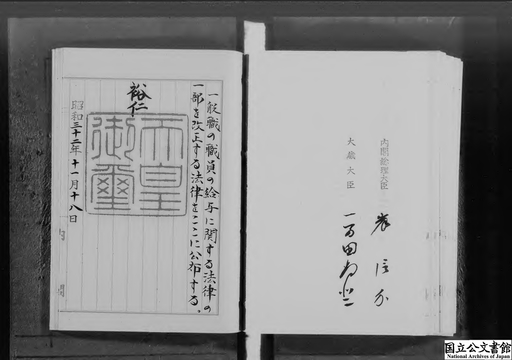 一般職の職員の給与に関する法律の
一部を改正する法律をここに公布する。
裕仁
天皇
御璽
昭和三十二年十一月十八日
内閣
内閣総理大臣
岸信介
大蔵大臣
一万田尚登
国立公文書館
National Archives of Japan